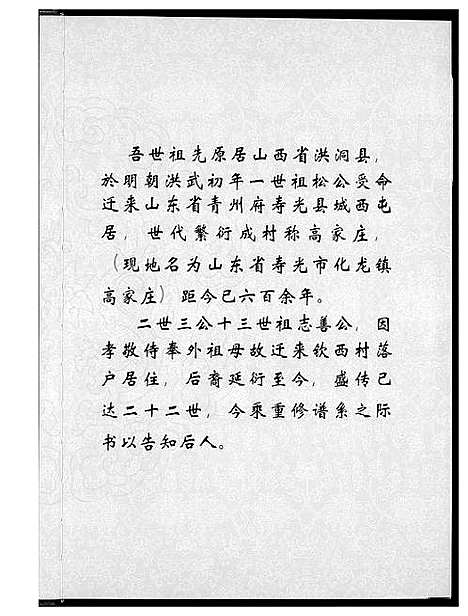 吾世祖先原居山西省洪洞县，
於明朝洪武初年一世祖松公受命
迁来山东省青州府寿光县城西屯
居，世代繁衍成村称高家庄，
（现地名为山东省寿光市化龙镇
高家庄）距今已六百余年。
二世三公十三世祖志善公，因
孝敬侍奉外祖母故迁来钦西村落
户居住，后裔延衍至今，盛传已
达二十二世，今乘重修谱系之际
书以告知后人。